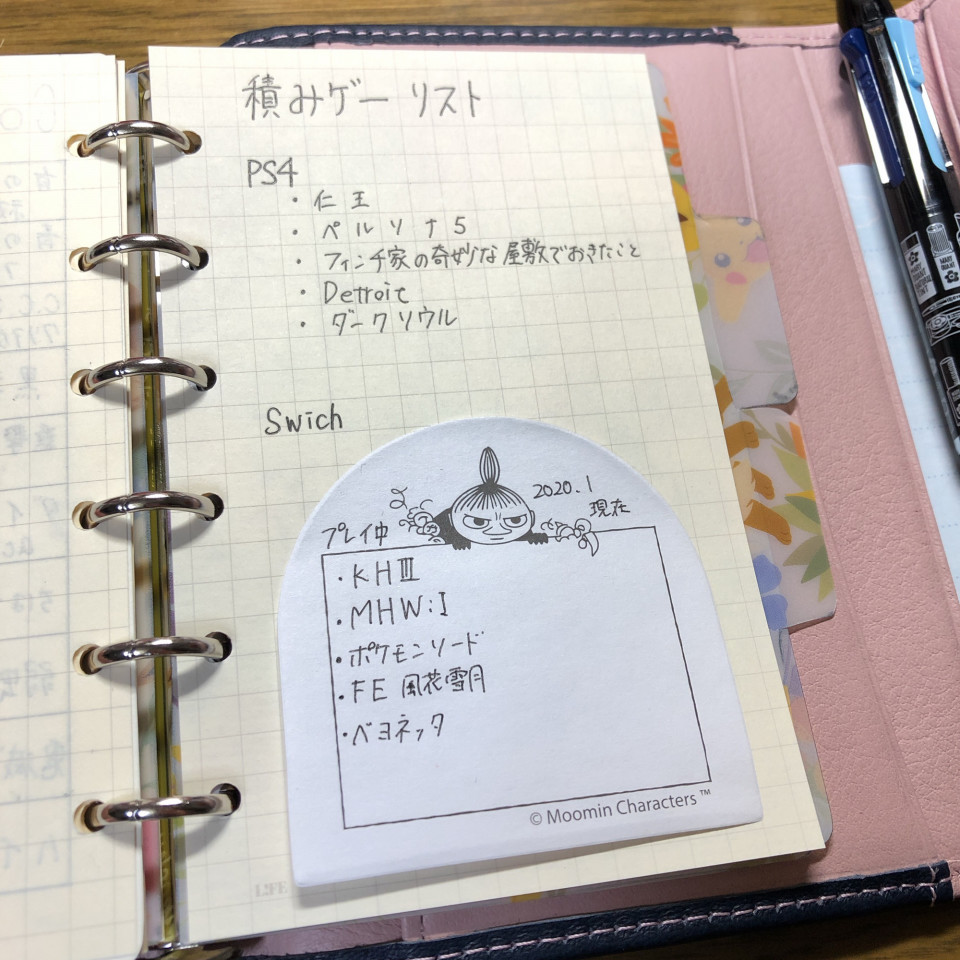 積みゲー リスト
PS4
・仁王
・ペルソナ5
・フィンチ家の奇妙な屋敷でおきたこと
・Detroit
・ダークソウル
Swich
2020.1
現在
プレイ中
・KHⅢ
・MHW:I
・ポケモンソード
・FE 風花雪月
・ベヨネッタ
© Moomin Characters™
L!FE